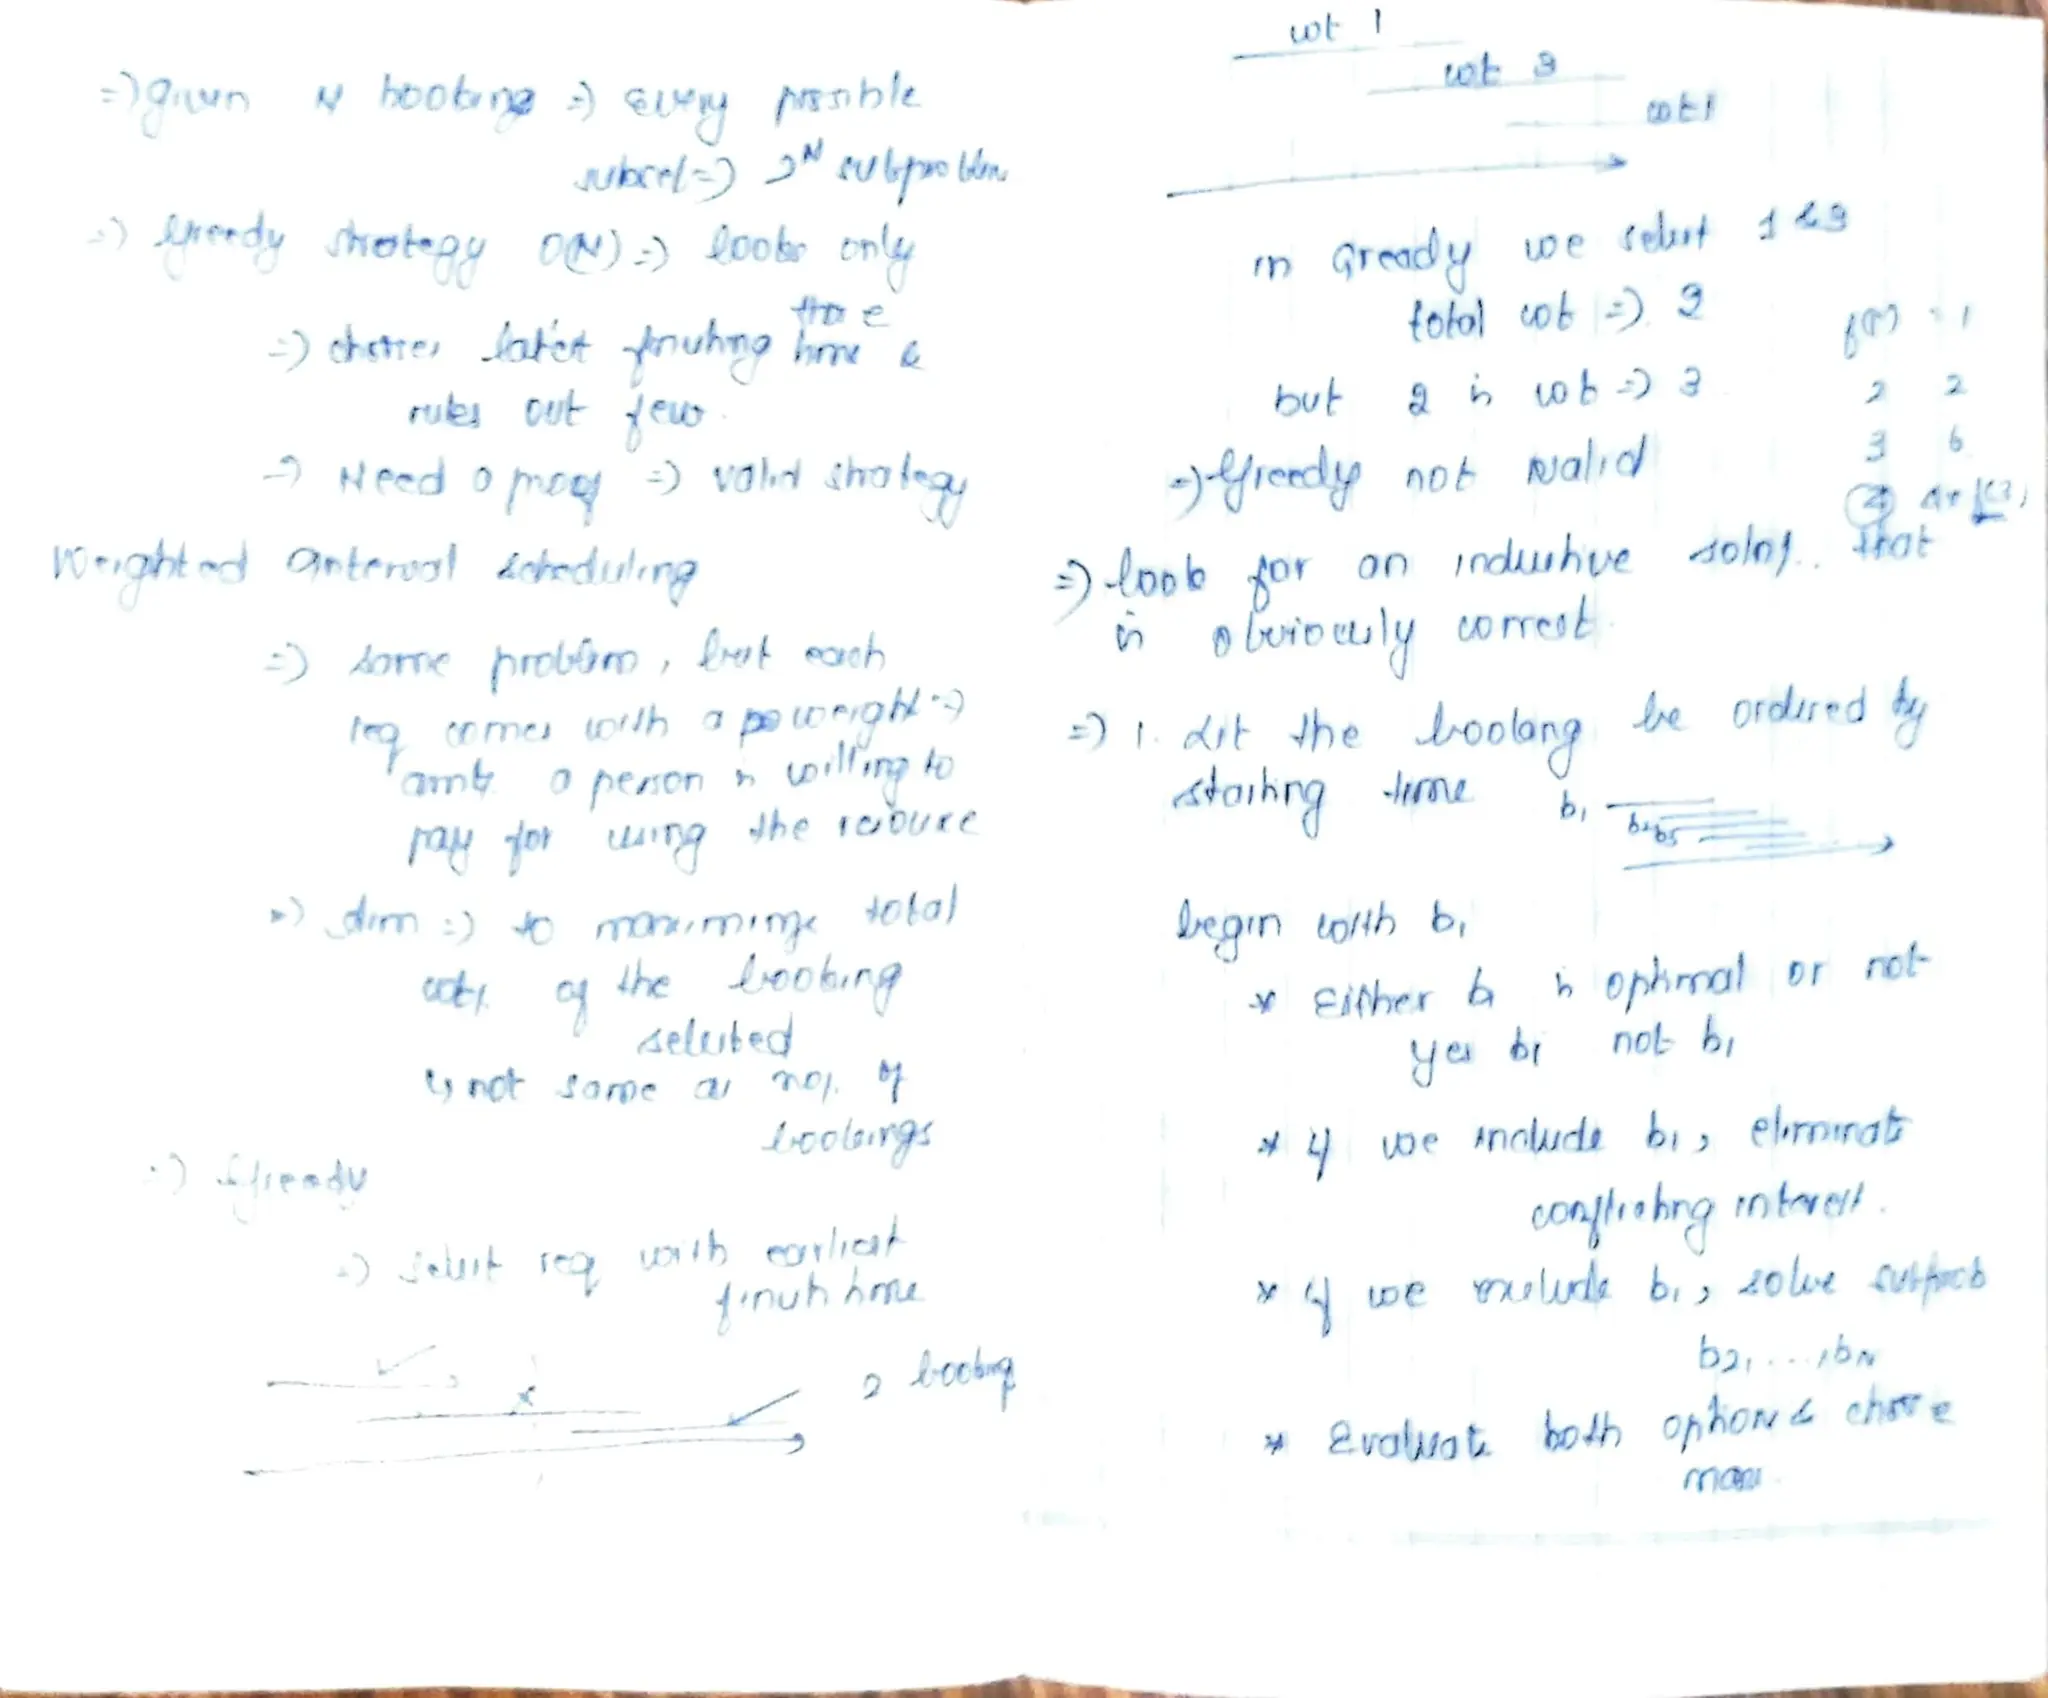 => given N booking => Every possible
subset => 2^N subproblem
=> Greedy strategy O(N) => looks only
=> choose latest finishing time &
rules out few.
=> Need a proof => valid strategy
Weighted Interval Scheduling
=> same problem, but each
req comes with a weight =>
amt. a person is willing to
pay for using the resource
=> Aim => to maximize total
wt. of the booking
selected
↳ not same as no. of
bookings
=> Greedy
=> select req with earliest
finish time
2 booking
wt 1
wt 3
wt 1
in Greedy we select 1 & 3
total wt => 2
but 2 is wt => 3
=> Greedy not valid
f(1) = 1
2 2
3 6
4
=> look for an inductive soln. that
is obviously correct.
=> 1. Let the booking be ordered by
starting time
b1
b2
b3
begin with b1
* Either b1 is optimal or not
yes b1 not b1
* If we include b1, eliminate
conflicting
* If we exclude b1, solve
b2, ..., bN
* Evaluate both options & choose
max.